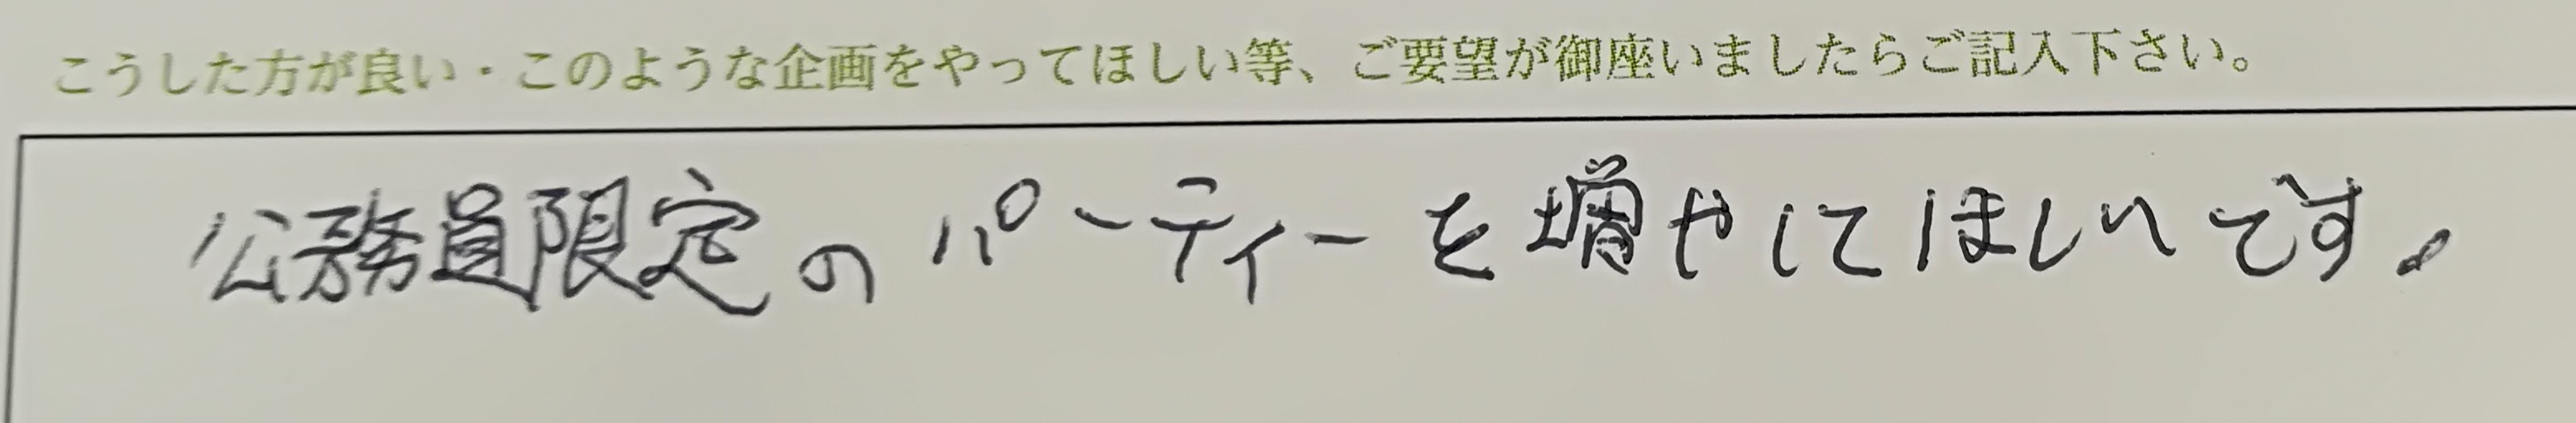 こうした方が良い・このような企画をやってほしい等、ご要望が御座いましたらご記入下さい。
公務員限定のパーティーを増やしてほしいです。